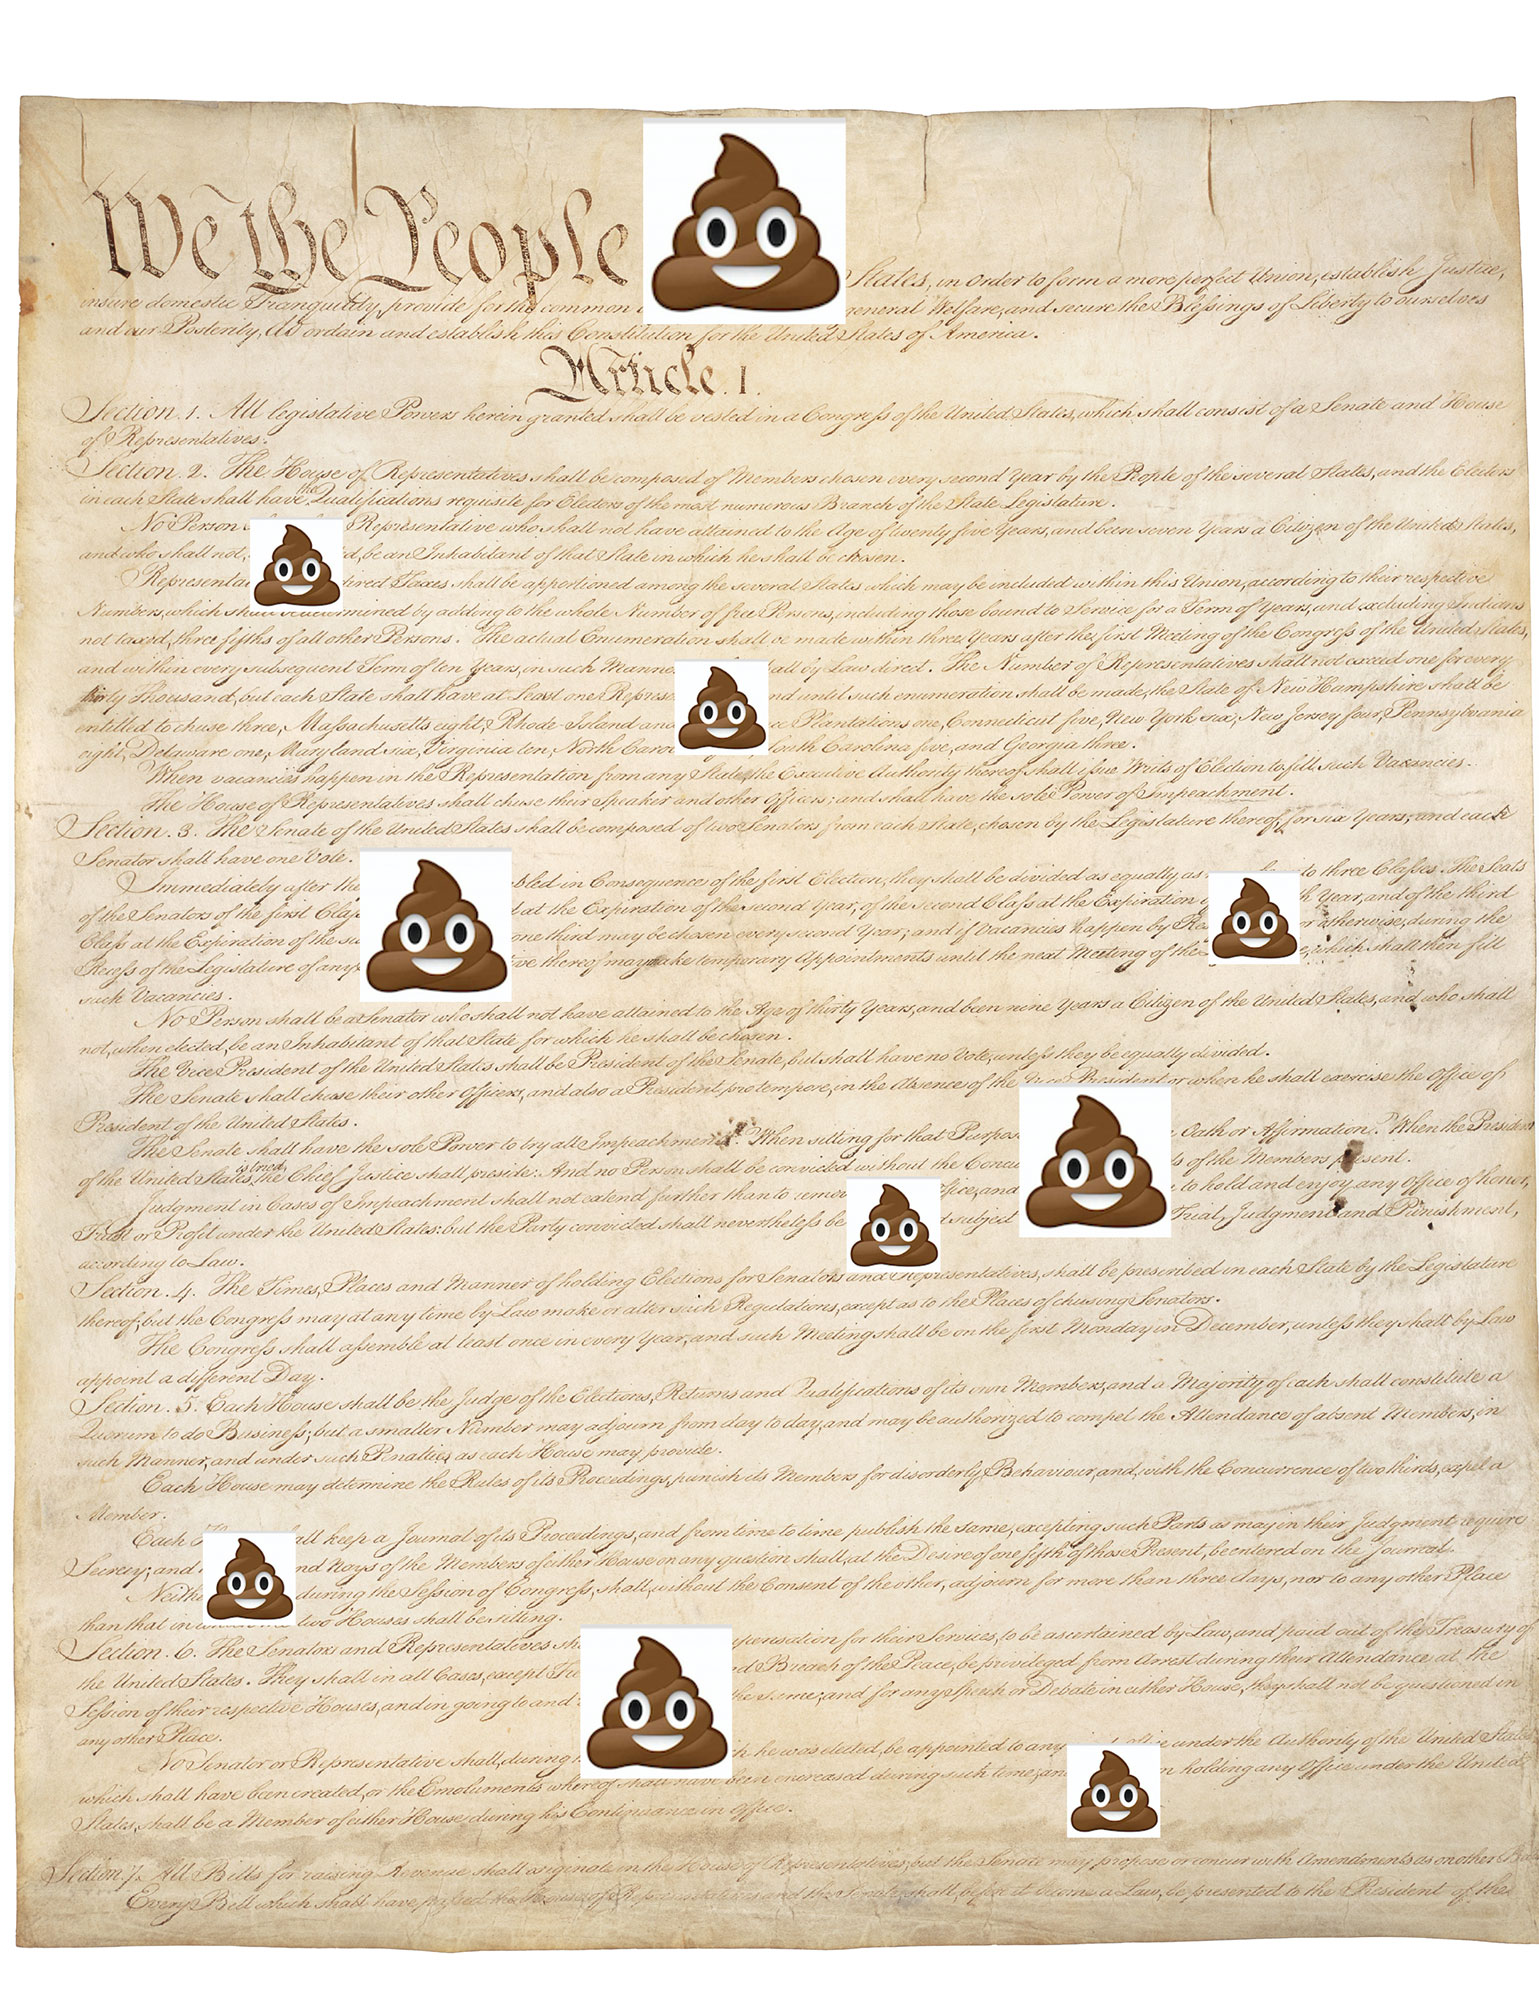 We the People
States, in Order to form a more perfect Union, establish Justice,
insure domestic Tranquility, provide for the common general Welfare, and secure the Blessings of Liberty to ourselves
and our Posterity, do ordain and establish this Constitution for the United States of America.
Article. I.
Section. 1. All legislative Powers herein granted shall be vested in a Congress of the United States, which shall consist of a Senate and House
of Representatives.
Section. 2. The House of Representatives shall be composed of Members chosen every second Year by the People of the several States, and the Electors
in each State shall have the Qualifications requisite for Electors of the most numerous Branch of the State Legislature.
No Person Representative who shall not have attained to the Age of twenty five Years, and been seven Years a Citizen of the United States,
and who shall not, be an Inhabitant of that State in which he shall be chosen.
Representa direct Taxes shall be apportioned among the several States which may be included within this Union, according to their respective
Numbers, which shall be determined by adding to the whole Number of free Persons, including those bound to Service for a Term of Years, and excluding Indians
not taxed, three fifths of all other Persons. The actual Enumeration shall be made within three Years after the first Meeting of the Congress of the United States,
and within every subsequent Term of ten Years, in such Manne all by Law direct. The Number of Representatives shall not exceed one for every
thirty Thousand, but each State shall have at Least one Repres nd until such enumeration shall be made, the State of New Hampshire shall be
entitled to chuse three, Massachusetts eight, Rhode-Island and ce Plantations one, Connecticut five, New-York six, New Jersey four, Pennsylvania
eight, Delaware one, Maryland six, Virginia ten, North Caro outh Carolina five, and Georgia three.
When vacancies happen in the Representation from any State, the Executive Authority thereof shall issue Writs of Election to fill such Vacancies.
The House of Representatives shall chuse their Speaker and other Officers; and shall have the sole Power of Impeachment.
Section. 3. The Senate of the United States shall be composed of two Senators from each State, chosen by the Legislature thereof, for six Years; and each
Senator shall have one Vote.
Immediately after the bled in Consequence of the first Election, they shall be divided as equally as into three Classes. The Seats
of the Senators of the first Class at the Expiration of the second Year, of the second Class at the Expiration h Year, and of the third
Class at the Expiration of the six one third may be chosen every second Year; and if Vacancies happen by Res or otherwise, during the
Recess of the Legislature of any ve thereof may make temporary Appointments until the next Meeting of the which shall then fill
such Vacancies.
No Person shall be a Senator who shall not have attained to the Age of thirty Years, and been nine Years a Citizen of the United States, and who shall
not, when elected, be an Inhabitant of that State for which he shall be chosen.
The Vice President of the United States shall be President of the Senate, but shall have no Vote, unless they be equally divided.
The Senate shall chuse their other Officers, and also a President pro tempore, in the Absence of the Vice President or when he shall exercise the Office of
President of the United States.
The Senate shall have the sole Power to try all Impeachments. When sitting for that Purpos Oath or Affirmation. When the President
of the United States is tried, the Chief Justice shall preside: And no Person shall be convicted without the Concu of the Members present.
Judgment in Cases of Impeachment shall not extend further than to remov ffice, and to hold and enjoy any Office of honor,
Trust or Profit under the United States: but the Party convicted shall nevertheless be subject Trial, Judgment and Punishment,
according to Law.
Section. 4. The Times, Places and Manner of holding Elections for Senators and Representatives, shall be prescribed in each State by the Legislature
thereof; but the Congress may at any time by Law make or alter such Regulations, except as to the Places of chusing Senators.
The Congress shall assemble at least once in every Year, and such Meeting shall be on the first Monday in December, unless they shall by Law
appoint a different Day.
Section. 5. Each House shall be the Judge of the Elections, Returns and Qualifications of its own Members, and a Majority of each shall constitute a
Quorum to do Business; but a smaller Number may adjourn from day to day, and may be authorized to compel the Attendance of absent Members, in
such Manner, and under such Penalties as each House may provide.
Each House may determine the Rules of its Proceedings, punish its Members for disorderly Behaviour, and, with the Concurrence of two thirds, expel a
Member.
Each all keep a Journal of its Proceedings, and from time to time publish the same, excepting such Parts as may in their Judgment require
Secrecy; and nd Nays of the Members of either House on any question shall, at the Desire of one fifth of those Present, be entered on the Journal.
Neithe during the Session of Congress, shall, without the Consent of the other, adjourn for more than three days, nor to any other Place
than that in which the two Houses shall be sitting.
Section. 6. The Senators and Representatives sh pensation for their Services, to be ascertained by Law, and paid out of the Treasury of
the United States. They shall in all Cases, except Tre d Breach of the Peace, be privileged from Arrest during their Attendance at the
Session of their respective Houses, and in going to and the same; and for any Speech or Debate in either House, they shall not be questioned in
any other Place.
No Senator or Representative shall, during ch he was elected, be appointed to any Office under the Authority of the United States,
which shall have been created, or the Emoluments whereof shall have been encreased during such time; an n holding any Office under the United
States, shall be a Member of either House during his Continuance in Office.
Section. 7. All Bills for raising Revenue shall originate in the House of Representatives; but the Senate may propose or concur with Amendments as on other
Every Bill which shall have passed the House of Representatives and the Senate, shall, before it become a Law, be presented to the President of the